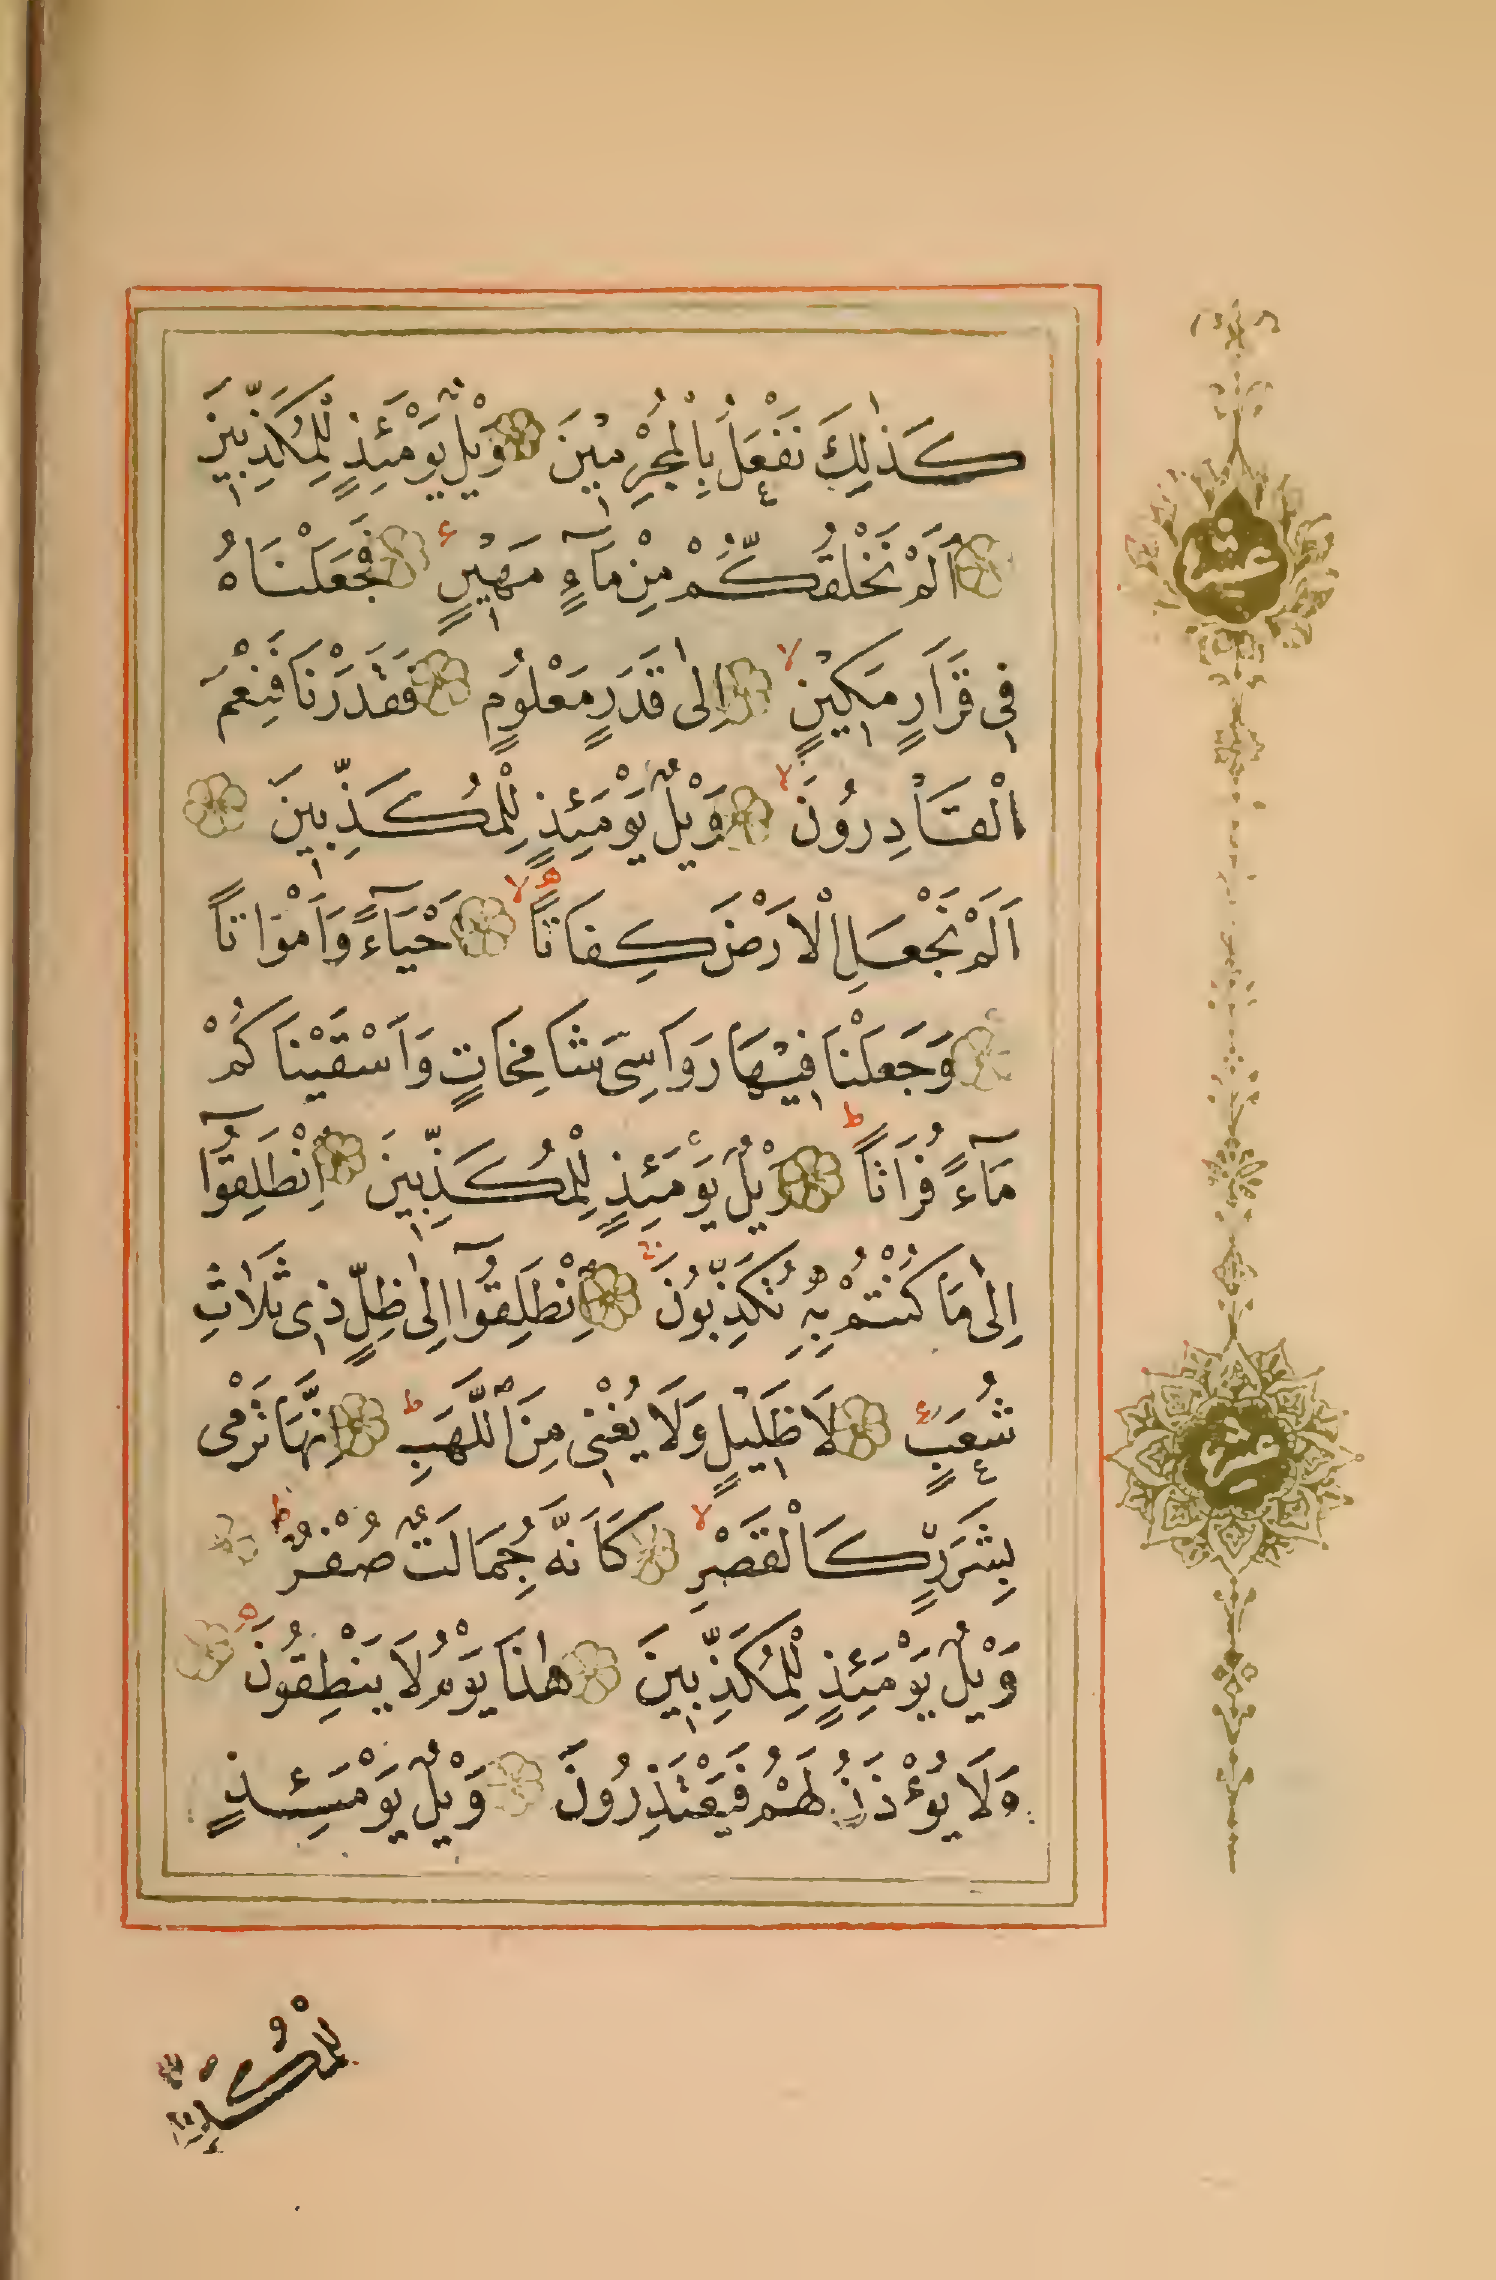 كَذٰلِكَ نَفْعَلُ بِالْمُجْرِمِينَ وَيْلٌ يَوْمَئِذٍ لِلْمُكَذِّبِينَ
اَلَمْ نَخْلُقْكُّمْ مِنْ مَآءٍ مَهِينٍ فَجَعَلْنَاهُ
فِى قَرَارٍ مَكِينٍ اِلٰى قَدَرٍ مَعْلُومٍ فَقَدَرْنَا فَنِعْمَ
الْقَادِرُونَ وَيْلٌ يَوْمَئِذٍ لِلْمُكَذِّبِينَ
اَلَمْ نَجْعَلِ الْاَرْضَ كِفَاتًا اَحْيَآءً وَاَمْوَاتًا
وَجَعَلْنَا فِيهَا رَوَاسِىَ شَامِخَاتٍ وَاَسْقَيْنَاكُمْ
مَآءً فُرَاتًا وَيْلٌ يَوْمَئِذٍ لِلْمُكَذِّبِينَ اِنْطَلِقُوٓا
اِلٰى مَا كُنْتُمْ بِهِ تُكَذِّبُونَ اِنْطَلِقُوٓا اِلٰى ظِلٍّ ذِى ثَلَاثِ
شُعَبٍ لَا ظَلِيلٍ وَلَا يُغْنِى مِنَ اللَّهَبِ اِنَّهَا تَرْمِى
بِشَرَرٍ كَالْقَصْرِ كَاَنَّهُ جِمَالَتٌ صُفْرٌ
وَيْلٌ يَوْمَئِذٍ لِلْمُكَذِّبِينَ هٰذَا يَوْمُ لَا يَنْطِقُونَ
وَلَا يُؤْذَنُ لَهُمْ فَيَعْتَذِرُونَ وَيْلٌ يَوْمَئِذٍ
لِلْمُكَذِّبِينَ
عشر
عشر